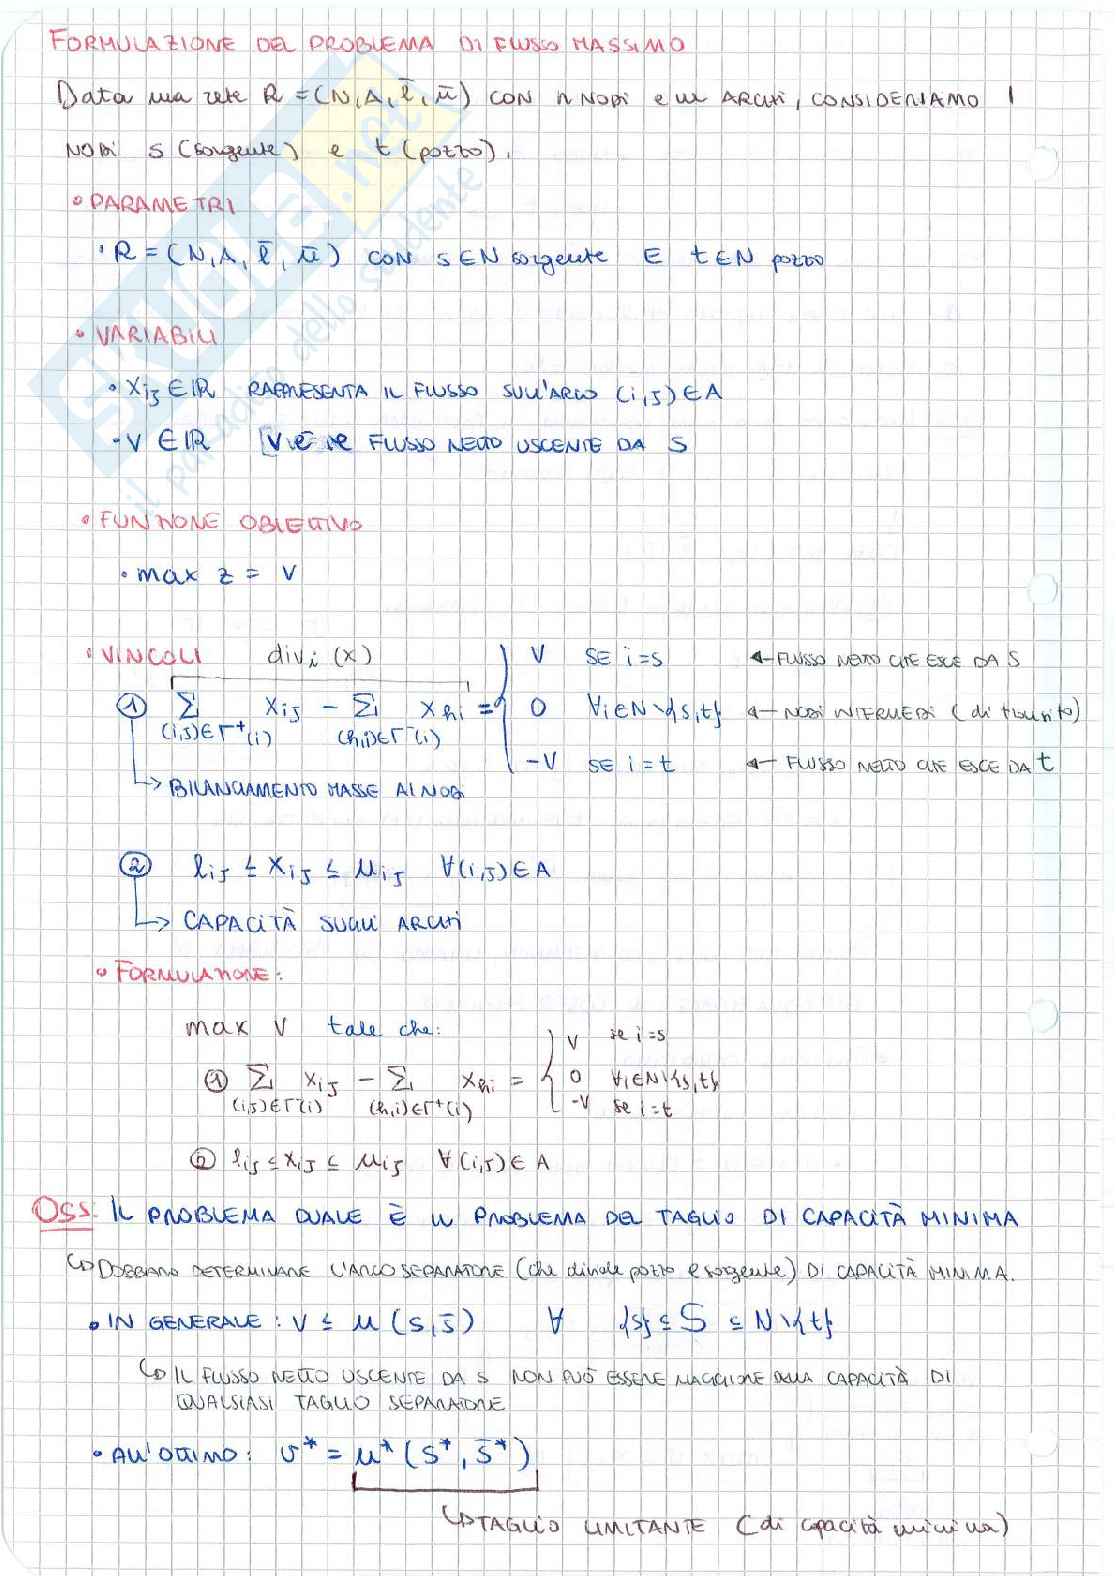 FORMULAZIONE DEL PROBLEMA DI FLUSSO MASSIMO
Data una rete R = (N, A, l̄, ū) CON n NODI e m ARCHI, CONSIDERIAMO I
NODI s (sorgente) e t (pozzo).
• PARAMETRI
• R = (N, A, l̄, ū) CON s ∈ N sorgente E t ∈ N pozzo
• VARIABILI
• Xij ∈ ℝ RAPPRESENTA IL FLUSSO SULL'ARCO (i,j) ∈ A
- V ∈ ℝ [V è il FLUSSO NETTO USCENTE DA S
• FUNZIONE OBIETTIVO
• max z = V
• VINCOLI divi (x)
① Σ(i,j)∈Γ⁺(i) Xij - Σ(h,i)∈Γ⁻(i) Xhi = { V SE i=s ← FLUSSO NETTO CHE ESCE DA S
0 ∀i∈N\{s,t} ← NODI INTERMEDI (di transito)
-V SE i=t ← FLUSSO NETTO CHE ESCE DA t
↳ BILANCIAMENTO MASSE AI NODI
② lij ≤ Xij ≤ uij ∀(i,j) ∈ A
↳ CAPACITÀ SUGLI ARCHI
• FORMULAZIONE:
max V tale che:
① Σ(i,j)∈Γ⁻(i) Xij - Σ(h,i)∈Γ⁺(i) Xhi = { V se i=s
0 ∀i∈N\{s,t}
-V se i=t
② lij ≤ Xij ≤ uij ∀(i,j) ∈ A
OSS: IL PROBLEMA DUALE È IL PROBLEMA DEL TAGLIO DI CAPACITÀ MINIMA
↳ DOBBIAMO DETERMINARE L'ARCO SEPARATORE (che divide pozzo e sorgente) DI CAPACITÀ MINIMA.
• IN GENERALE: V ≤ u (S, S̄) ∀ {s} ⊆ S ⊆ N\{t}
↳ IL FLUSSO NETTO USCENTE DA S NON PUÒ ESSERE MAGGIORE DELLA CAPACITÀ DI
QUALSIASI TAGLIO SEPARATORE
• ALL'OTTIMO: v* = u* (S*, S̄*)
↳ TAGLIO LIMITANTE (di capacità minima)
SKUOLA.net
il paradiso dello studente